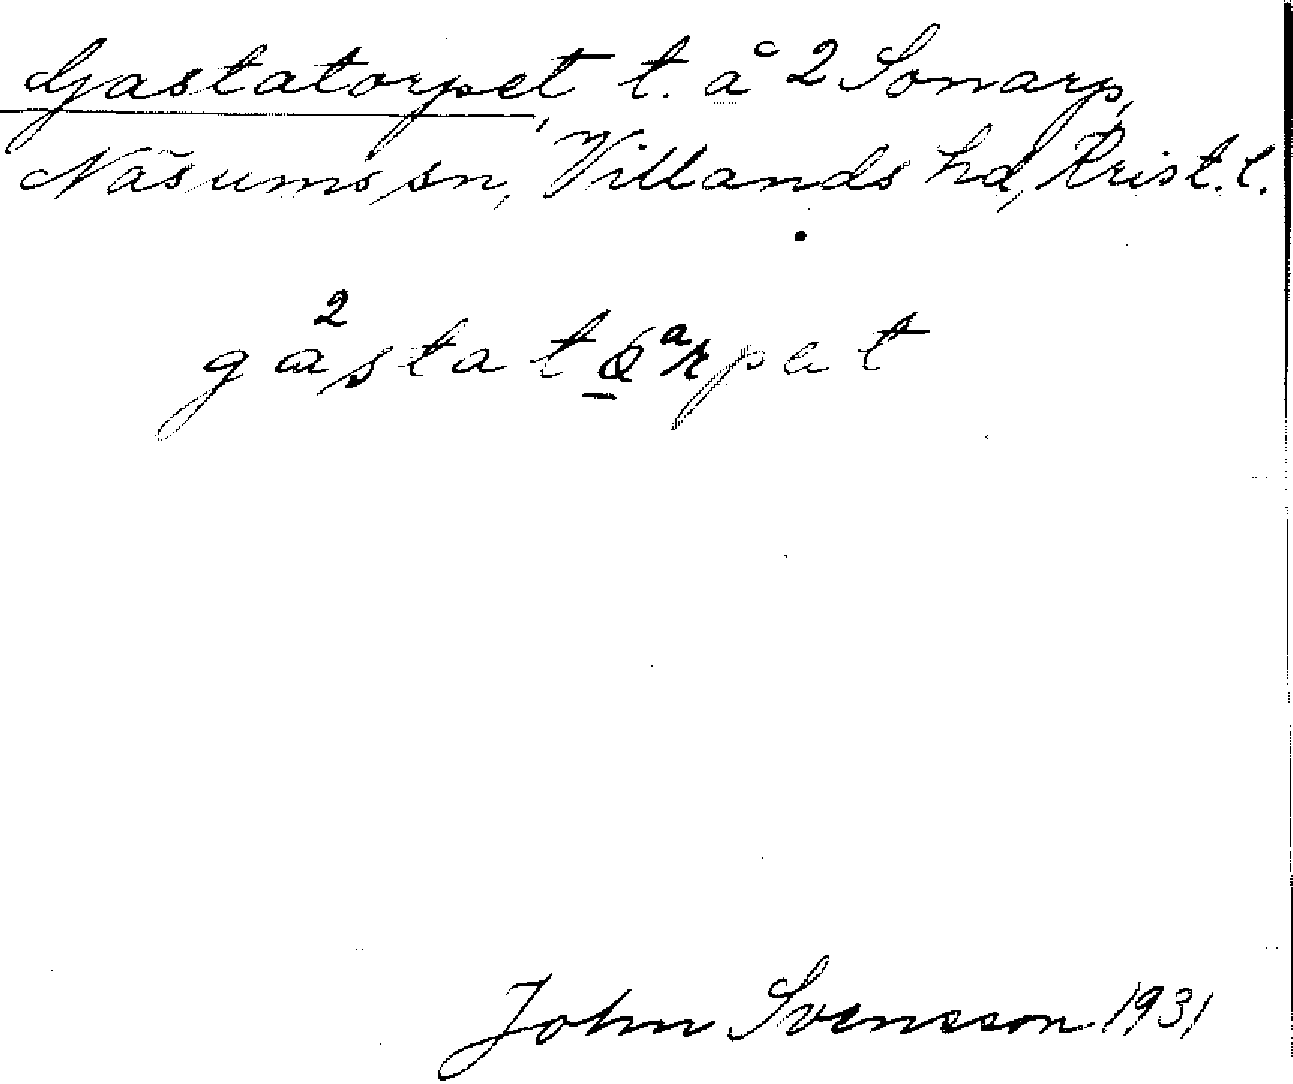 Gastatorpet, t. å 2 Sonarp,
Näsums sn, Villands hd, Krist. l.
2
gastatarpet
John Svensson 1931